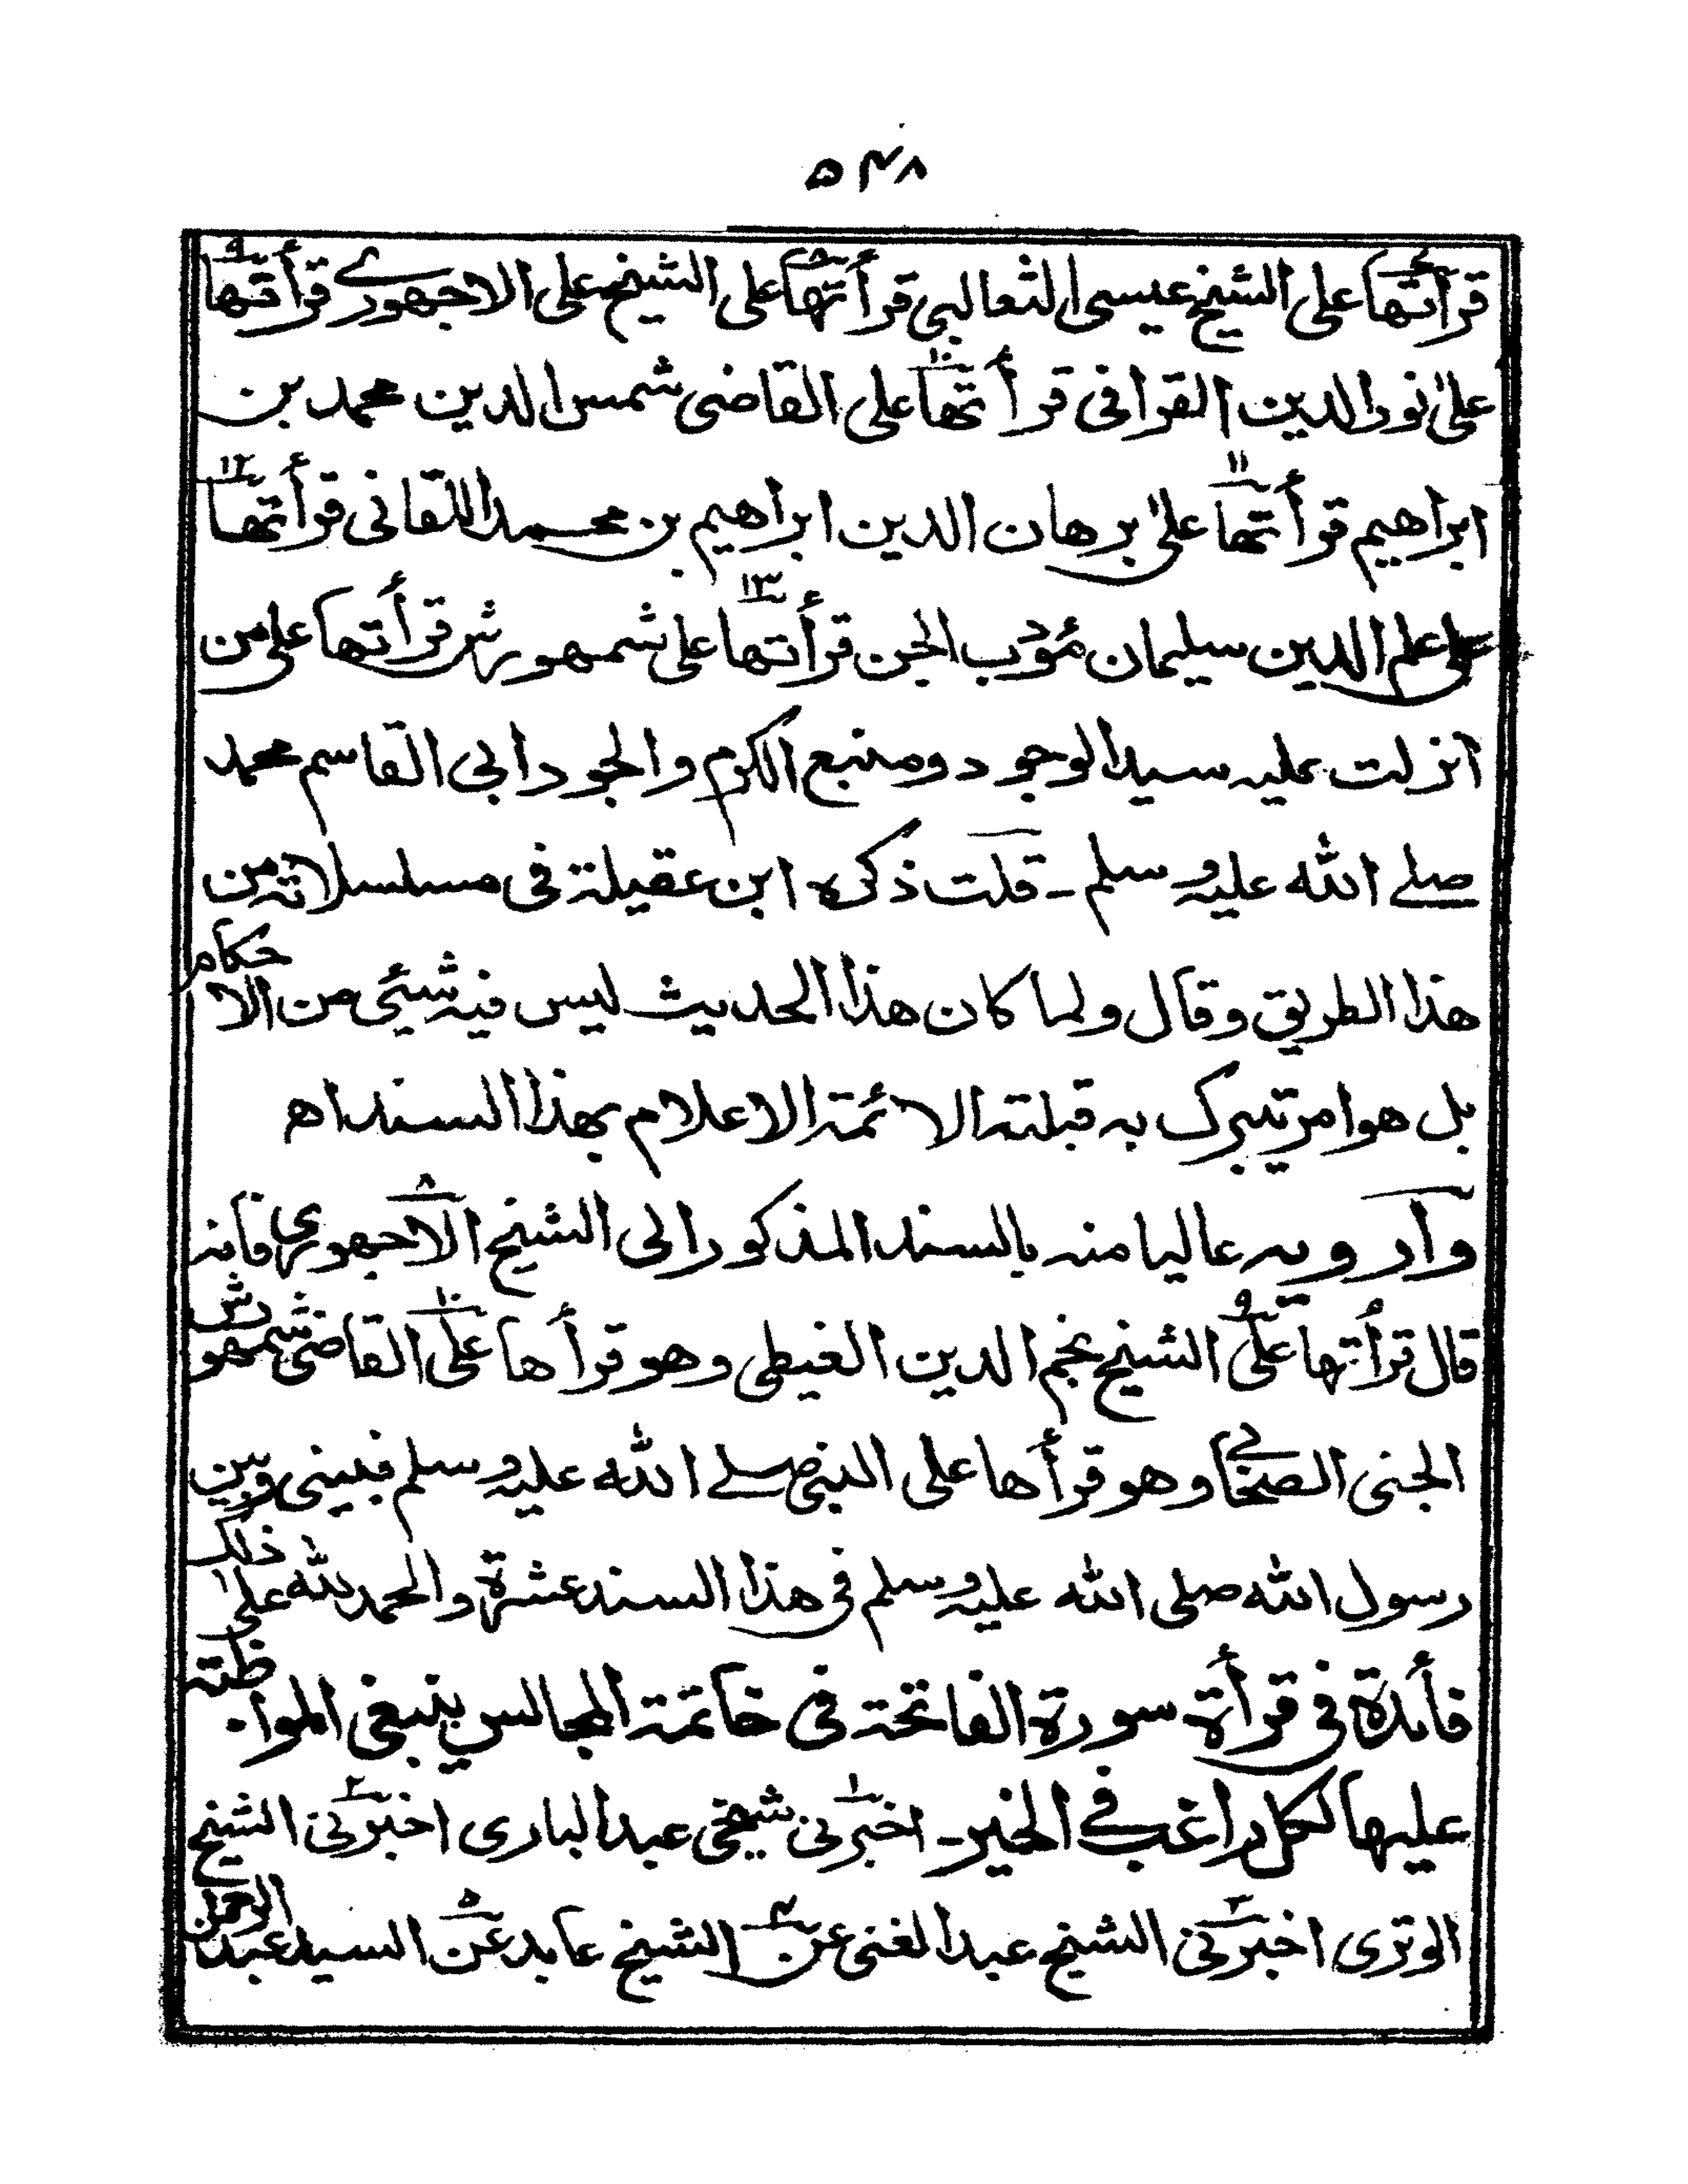 ۵۴۸
قرأتها علی الشیخ عیسی الثعالبی قرأتها علی الشیخ علی الاجهوری قرأتها
علیٰ نور الدین القرافی قرأتها علی القاضی شمس الدین محمد بن
ابراهیم قرأتها علیٰ برهان الدین ابراهیم بن محمد اللقانی قرأتها
علی علم الدین سلیمان مؤدب الجن قرأتها علی شمهورش قرأتها علی من
انزلت علیه سید الوجود ومنبع الکرم والجود ابی القاسم محمد
صلے الله علیه وسلم - قلت ذکره ابن عقیلة فی مسلسلاته من
هذا الطریق وقال ولما کان هذا الحدیث لیس فیه شیئ من الاحکام
بل هو امر تبرک به قبلته الائمة الاعلام بهذا السند اه
وأرویه عالیا منه بالسند المذکور الی الشیخ الاجهوری فأنه
قال قرأتها علی الشیخ نجم الدین الغیطی وهو قرأها علی القاضی شمهورش
الجنی الصحابی وهو قرأها علی النبی صلے الله علیه وسلم فبینی وبین
رسول الله صلی الله علیه وسلم فی هذا السند عشرة والحمد لله علیٰ ذلک
فأئدة فی قرأة سورة الفاتحة فی خاتمة المجالس ینبغی المواظبة
علیها لکل راغب فی الخیر - اخبرنی شیخی عبد الباری اخبرنی الشیخ
الوتری اخبرنی الشیخ عبد الغنی عن الشیخ عابد عن السید عبد الرحمن